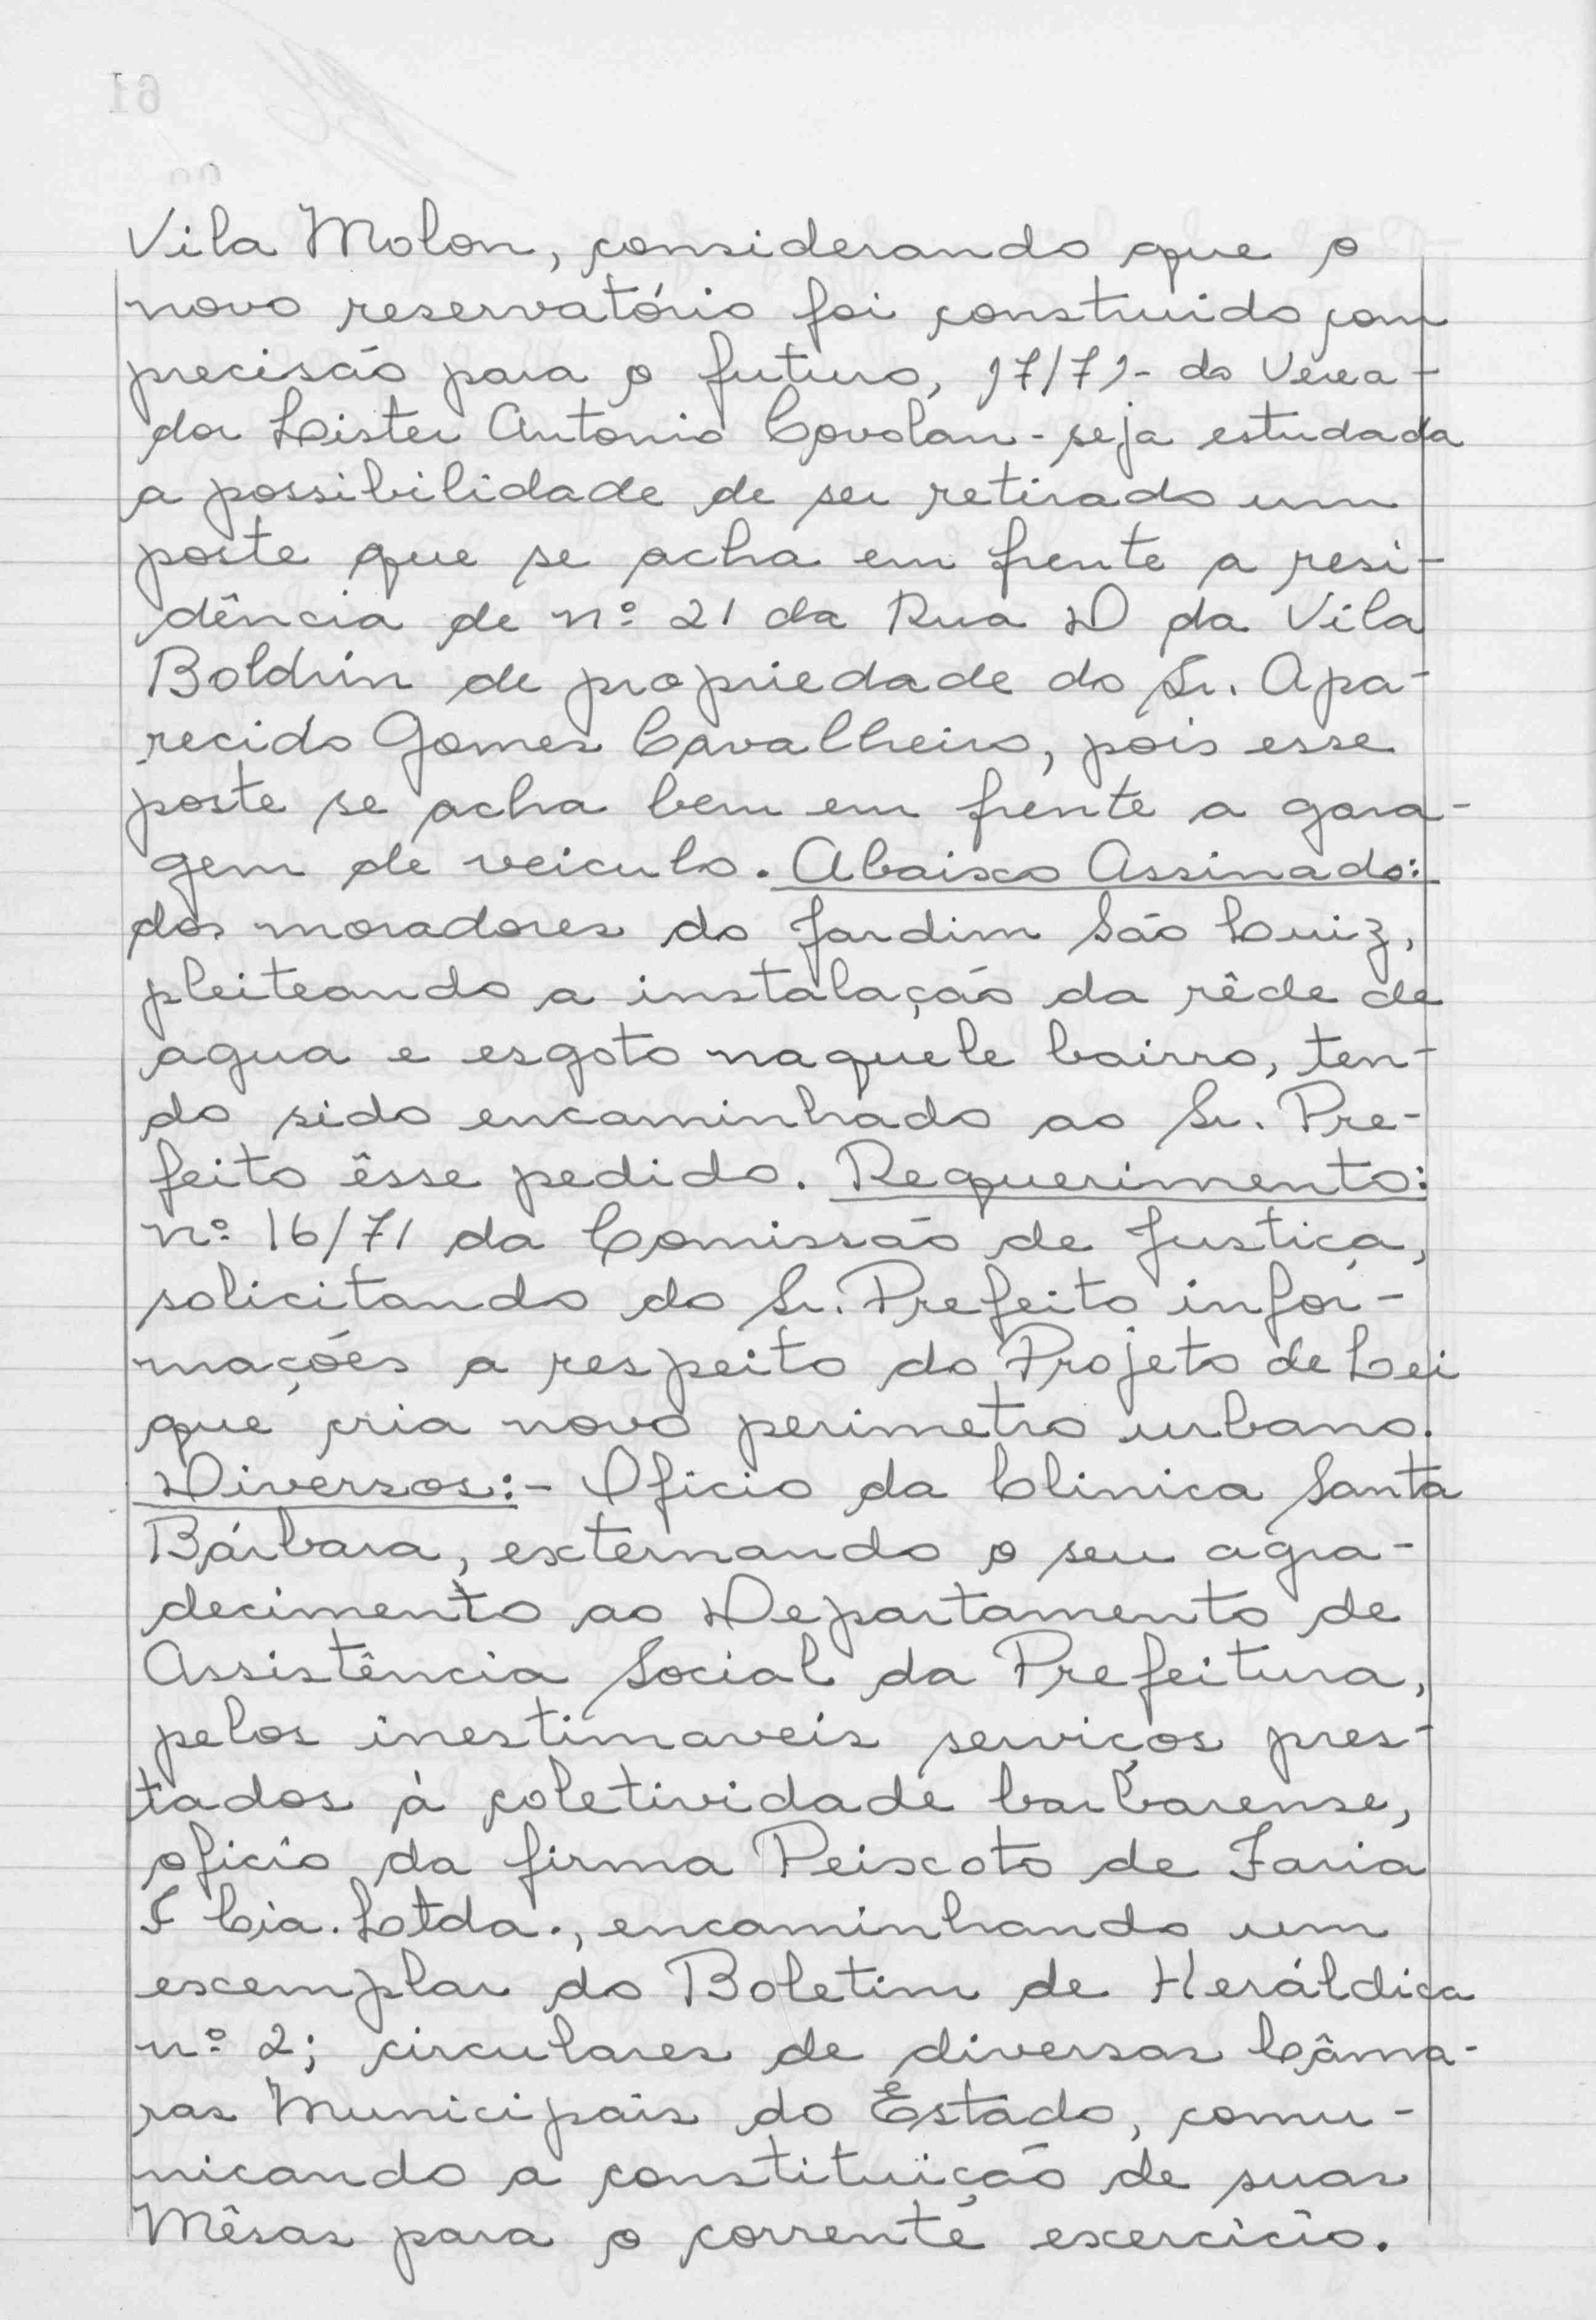 Vila Molon, considerando que o
novo reservatório foi construido com
precisão para o futuro, 17/71- do Verea-
dor Lister Antonio Covolan - seja estudada
a possibilidade de ser retirado um
poste que se acha em frente a resi-
dência de nº 21 da Rua D da Vila
Boldrin de propriedade do Sr. Apa-
recido Gomes Cavalheiro, pois esse
poste se acha bem em frente a gara-
gem de veiculo. Abaixo Assinado:
dos moradores do Jardim São Luiz,
pleiteando a instalação da rêde de
agua e esgoto naquele bairro, ten-
do sido encaminhado ao Sr. Pre-
feito êsse pedido. Requerimento:
nº 16/71 da Comissão de Justiça,
solicitando do Sr. Prefeito infor-
mações a respeito do Projeto de Lei
que cria novo perimetro urbano.
Diversos:- Oficio da Clinica Santa
Bárbara, externando o seu agra-
decimento ao Departamento de
Assistência Social da Prefeitura,
pelos inestimaveis serviços pres-
tados à coletividade barbarense,
oficio da firma Peixoto de Faria
& Cia. Ltda., encaminhando um
exemplar do Boletim de Heráldica
nº 2; circulares de diversas Câma-
ras Municipais do Estado, comu-
nicando a constituição de suas
Mêsas para o corrente exercicio.